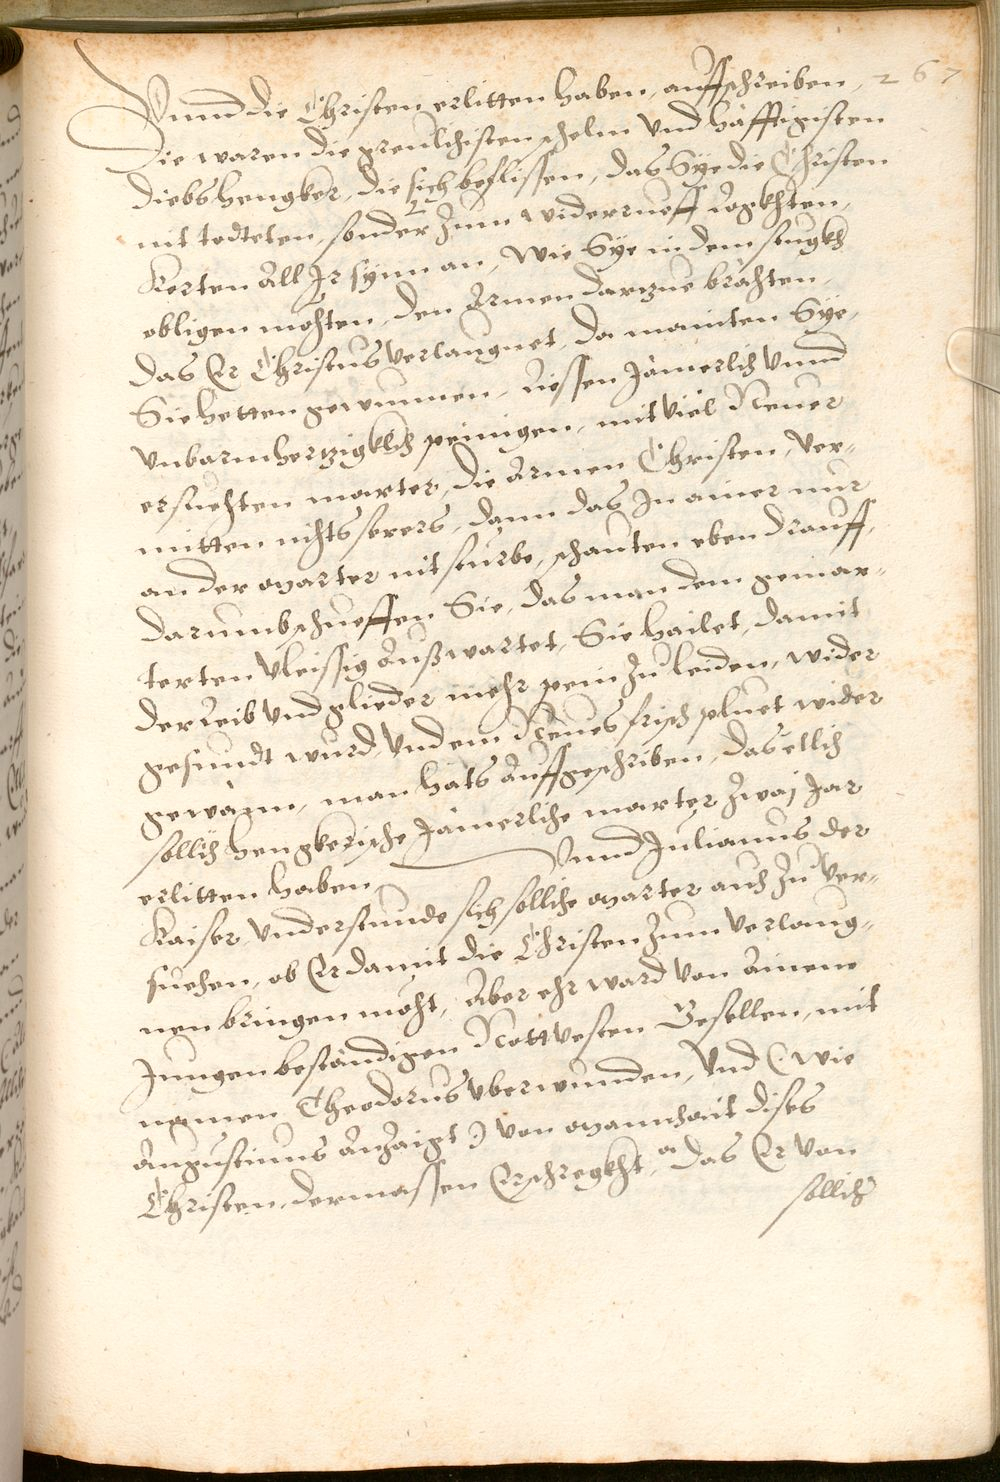 267
Vnnd die Christen erlitten haben, auffschreiben,
Die waren die greulichesten schelm vnd häfftigisten
diebshengkher, die sich beflissen, das Sye die Christen
nit todteten, sonder Zum widerrueff
Kerten All Ir synn an, Wie Sye in dem
obligen möchten, den Armen darzue brächten,
das Er Christus verlaugnet, da mainten Sye,
Sie hetten gewunnen, liessen Jämerlich vnnd
vnbarmhertzigklich peinigen, mit viel Neuer
ersuechten marter, die Armen Christen, ver-
mitten nichts serers, dann das In ainer nur
an der marter nit sturbe, schauten eben drauff,
darumb schueffen Sie, das man dem gemar-
terten vleissig Außwartet, Sie hailet, damit
der leib vnd glieder mehr pein Zu leiden, wider
gesundt wurd, vnd ein Neues frisch pluet wider
gewänn, man hats Auffgeschriben, das etlich
sollich hengkerische Jämerliche marter Zwaj Jar
erlitten haben, Vnnd Julianus der
Kaiser, vnderstunde sich solliche marter auch Zu ver-
suechen, ob Er damit die Christen Zum verlaug-
nen bringen möcht, Aber ehr ward von Ainem
Jungen beständigen Nottvesten Gesellen, mit
namen Theodorus vberwunden, vnd (wie
Augustinus Anzaigt) von mannhait dises
Christen, dermassen Erschregkht, das Er von
sollich